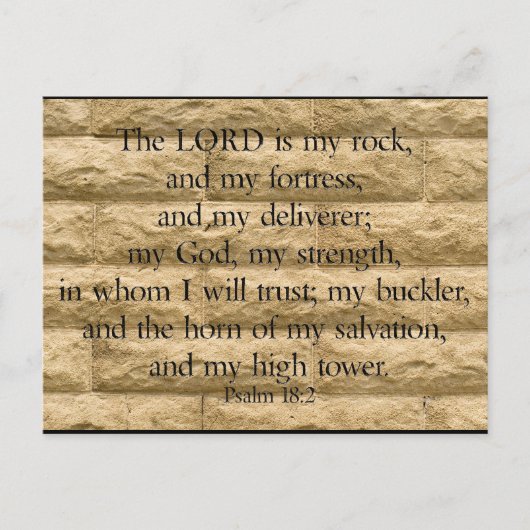 The LORD is my rock,
and my fortress,
and my deliverer;
my God, my strength,
in whom I will trust; my buckler,
and the horn of my salvation,
and my high tower.
Psalm 18:2